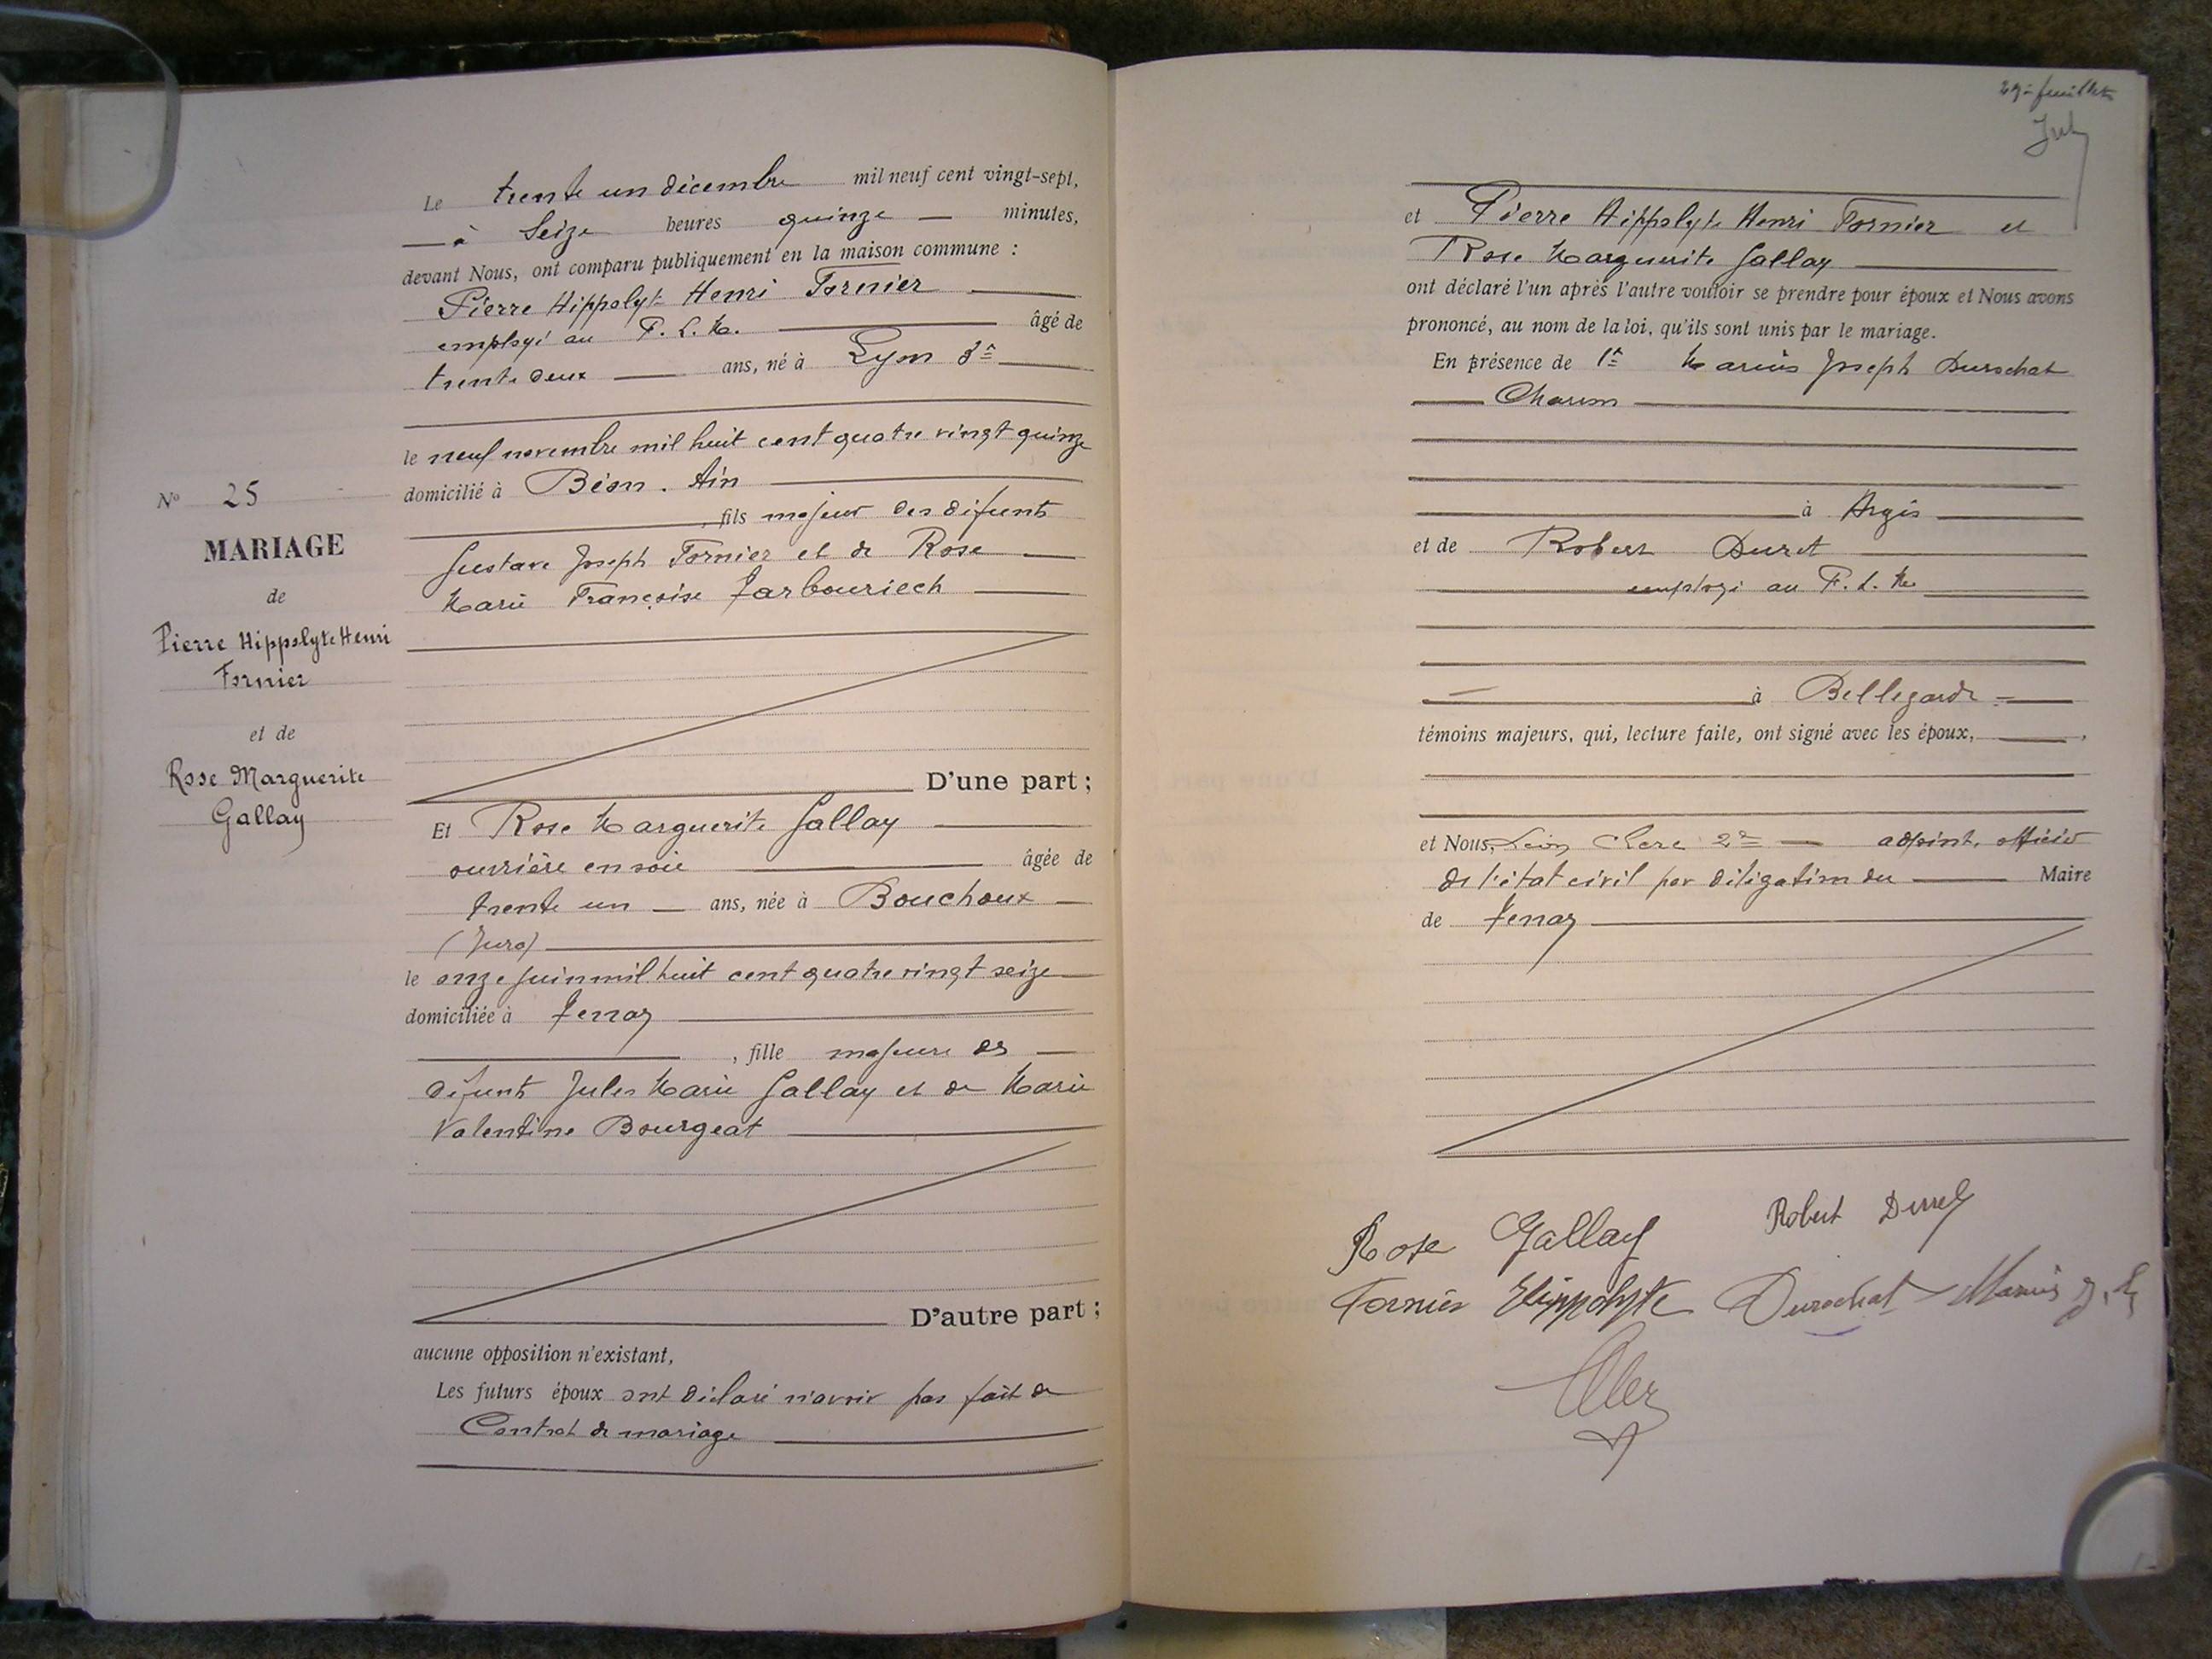 Le trente un décembre mil neuf cent vingt-sept,
à Seize heures quinze minutes,
devant Nous, ont comparu publiquement en la maison commune :
Pierre Hippolyte Henri Fornier
employé au P. L. M. âgé de
trente deux ans, né à Lyon 3e
le neuf novembre mil huit cent quatre vingt quinze
domicilié à Béon. Ain
, fils majeur des défunts
Gustave Joseph Fornier et de Rose
Marie Françoise Jarbouriech
D'une part ;
Et Rose Marguerite Gallay
ouvrière en soie âgée de
trente un ans, née à Bouchoux
(Jura)
le onze juin mil huit cent quatre vingt seize
domiciliée à Tenay
, fille majeure des
défunts Jules Marie Gallay et de Marie
Valentine Bourgeat
D'autre part ;
aucune opposition n'existant,
Les futurs époux ont déclaré n'avoir pas fait de
Contrat de mariage
N° 25
MARIAGE
de
Pierre Hippolyte Henri
Fornier
et de
Rose Marguerite
Gallay
29e feuillet
et Pierre Hippolyte Henri Fornier et
Rose Marguerite Gallay
ont déclaré l'un après l'autre vouloir se prendre pour époux et Nous avons
prononcé, au nom de la loi, qu'ils sont unis par le mariage.
En présence de 1° Marius Joseph Durochat
Charron
à Argis
et de Robert Duret
employé au P. L. M.
à Bellegarde
témoins majeurs, qui, lecture faite, ont signé avec les époux,
et Nous, Léon Clerc 2e adjoint, officier
de l'état civil par déligation du Maire
de Tenay
Rose Gallay Robert Duret
Fornier Hippolyte Durochat Marius J.